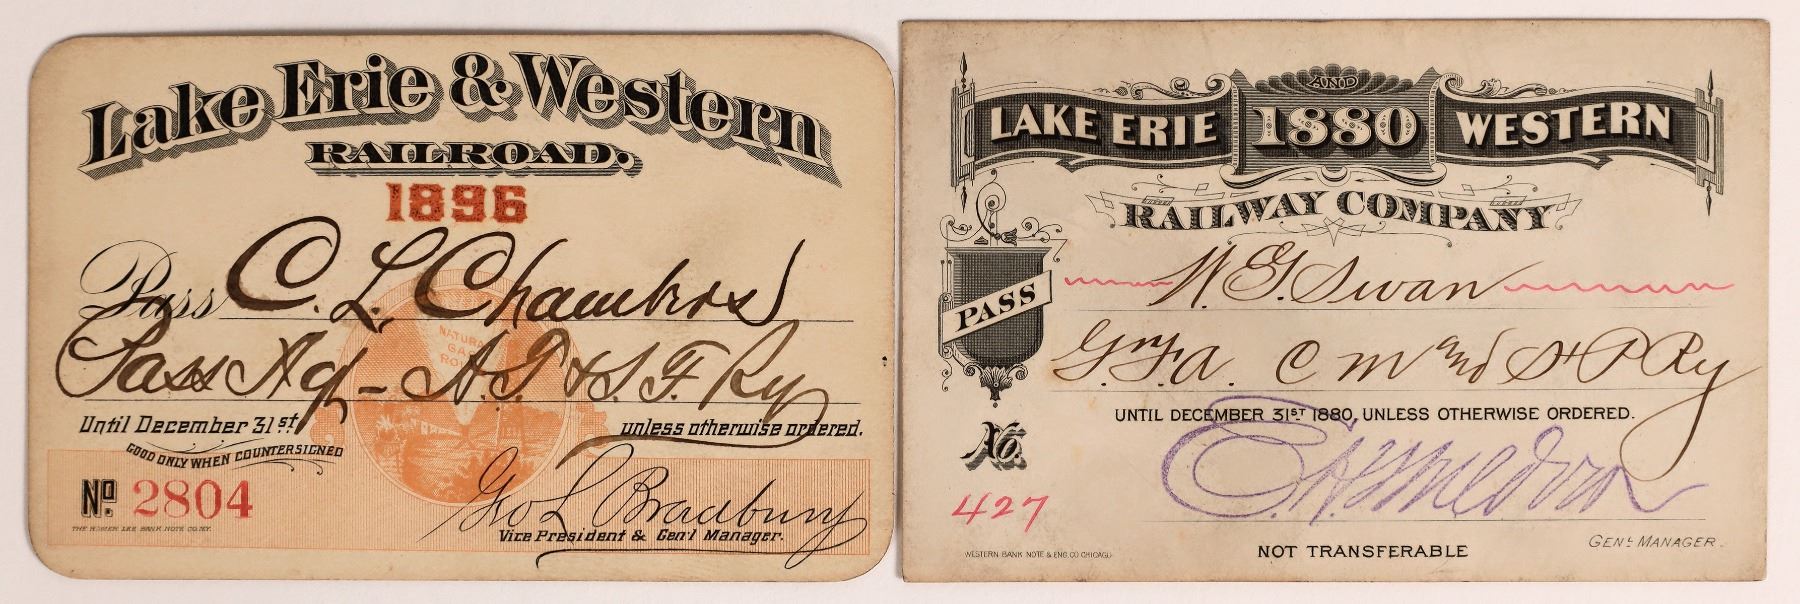 Lake Erie & Western
RAILROAD.
1896
Pass C. L. Chambers
Pass Ag - A. T. & S. F. Ry
NATURAL
GAS
ROUTE
Until December 31st unless otherwise ordered.
GOOD ONLY WHEN COUNTERSIGNED
No. 2804
Geo L Bradbury
Vice President & Gen'l Manager.
THE HOMER LEE BANK NOTE CO. N.Y.
AND
LAKE ERIE 1880 WESTERN
RAILWAY COMPANY
PASS
W. G. Swan
G. F. A. C M and St P Ry
UNTIL DECEMBER 31ST 1880, UNLESS OTHERWISE ORDERED.
No.
427
GEN'L MANAGER.
NOT TRANSFERABLE
WESTERN BANK NOTE & ENG. CO. CHICAGO